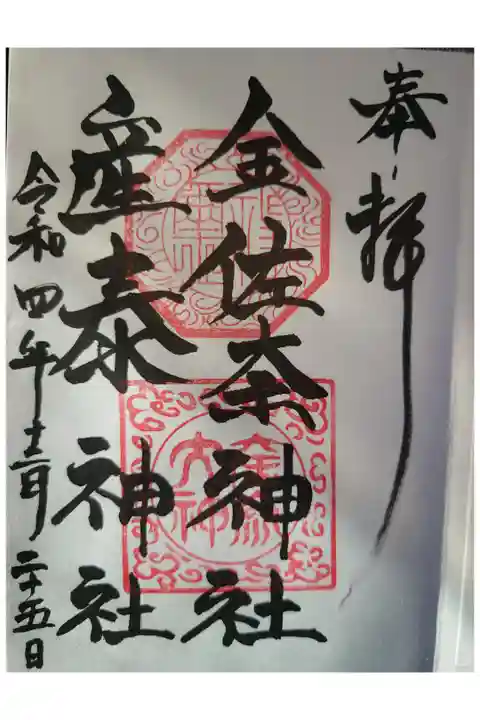 奉拝
金佐奈神社
産泰神社
令和四年十二月二十五日